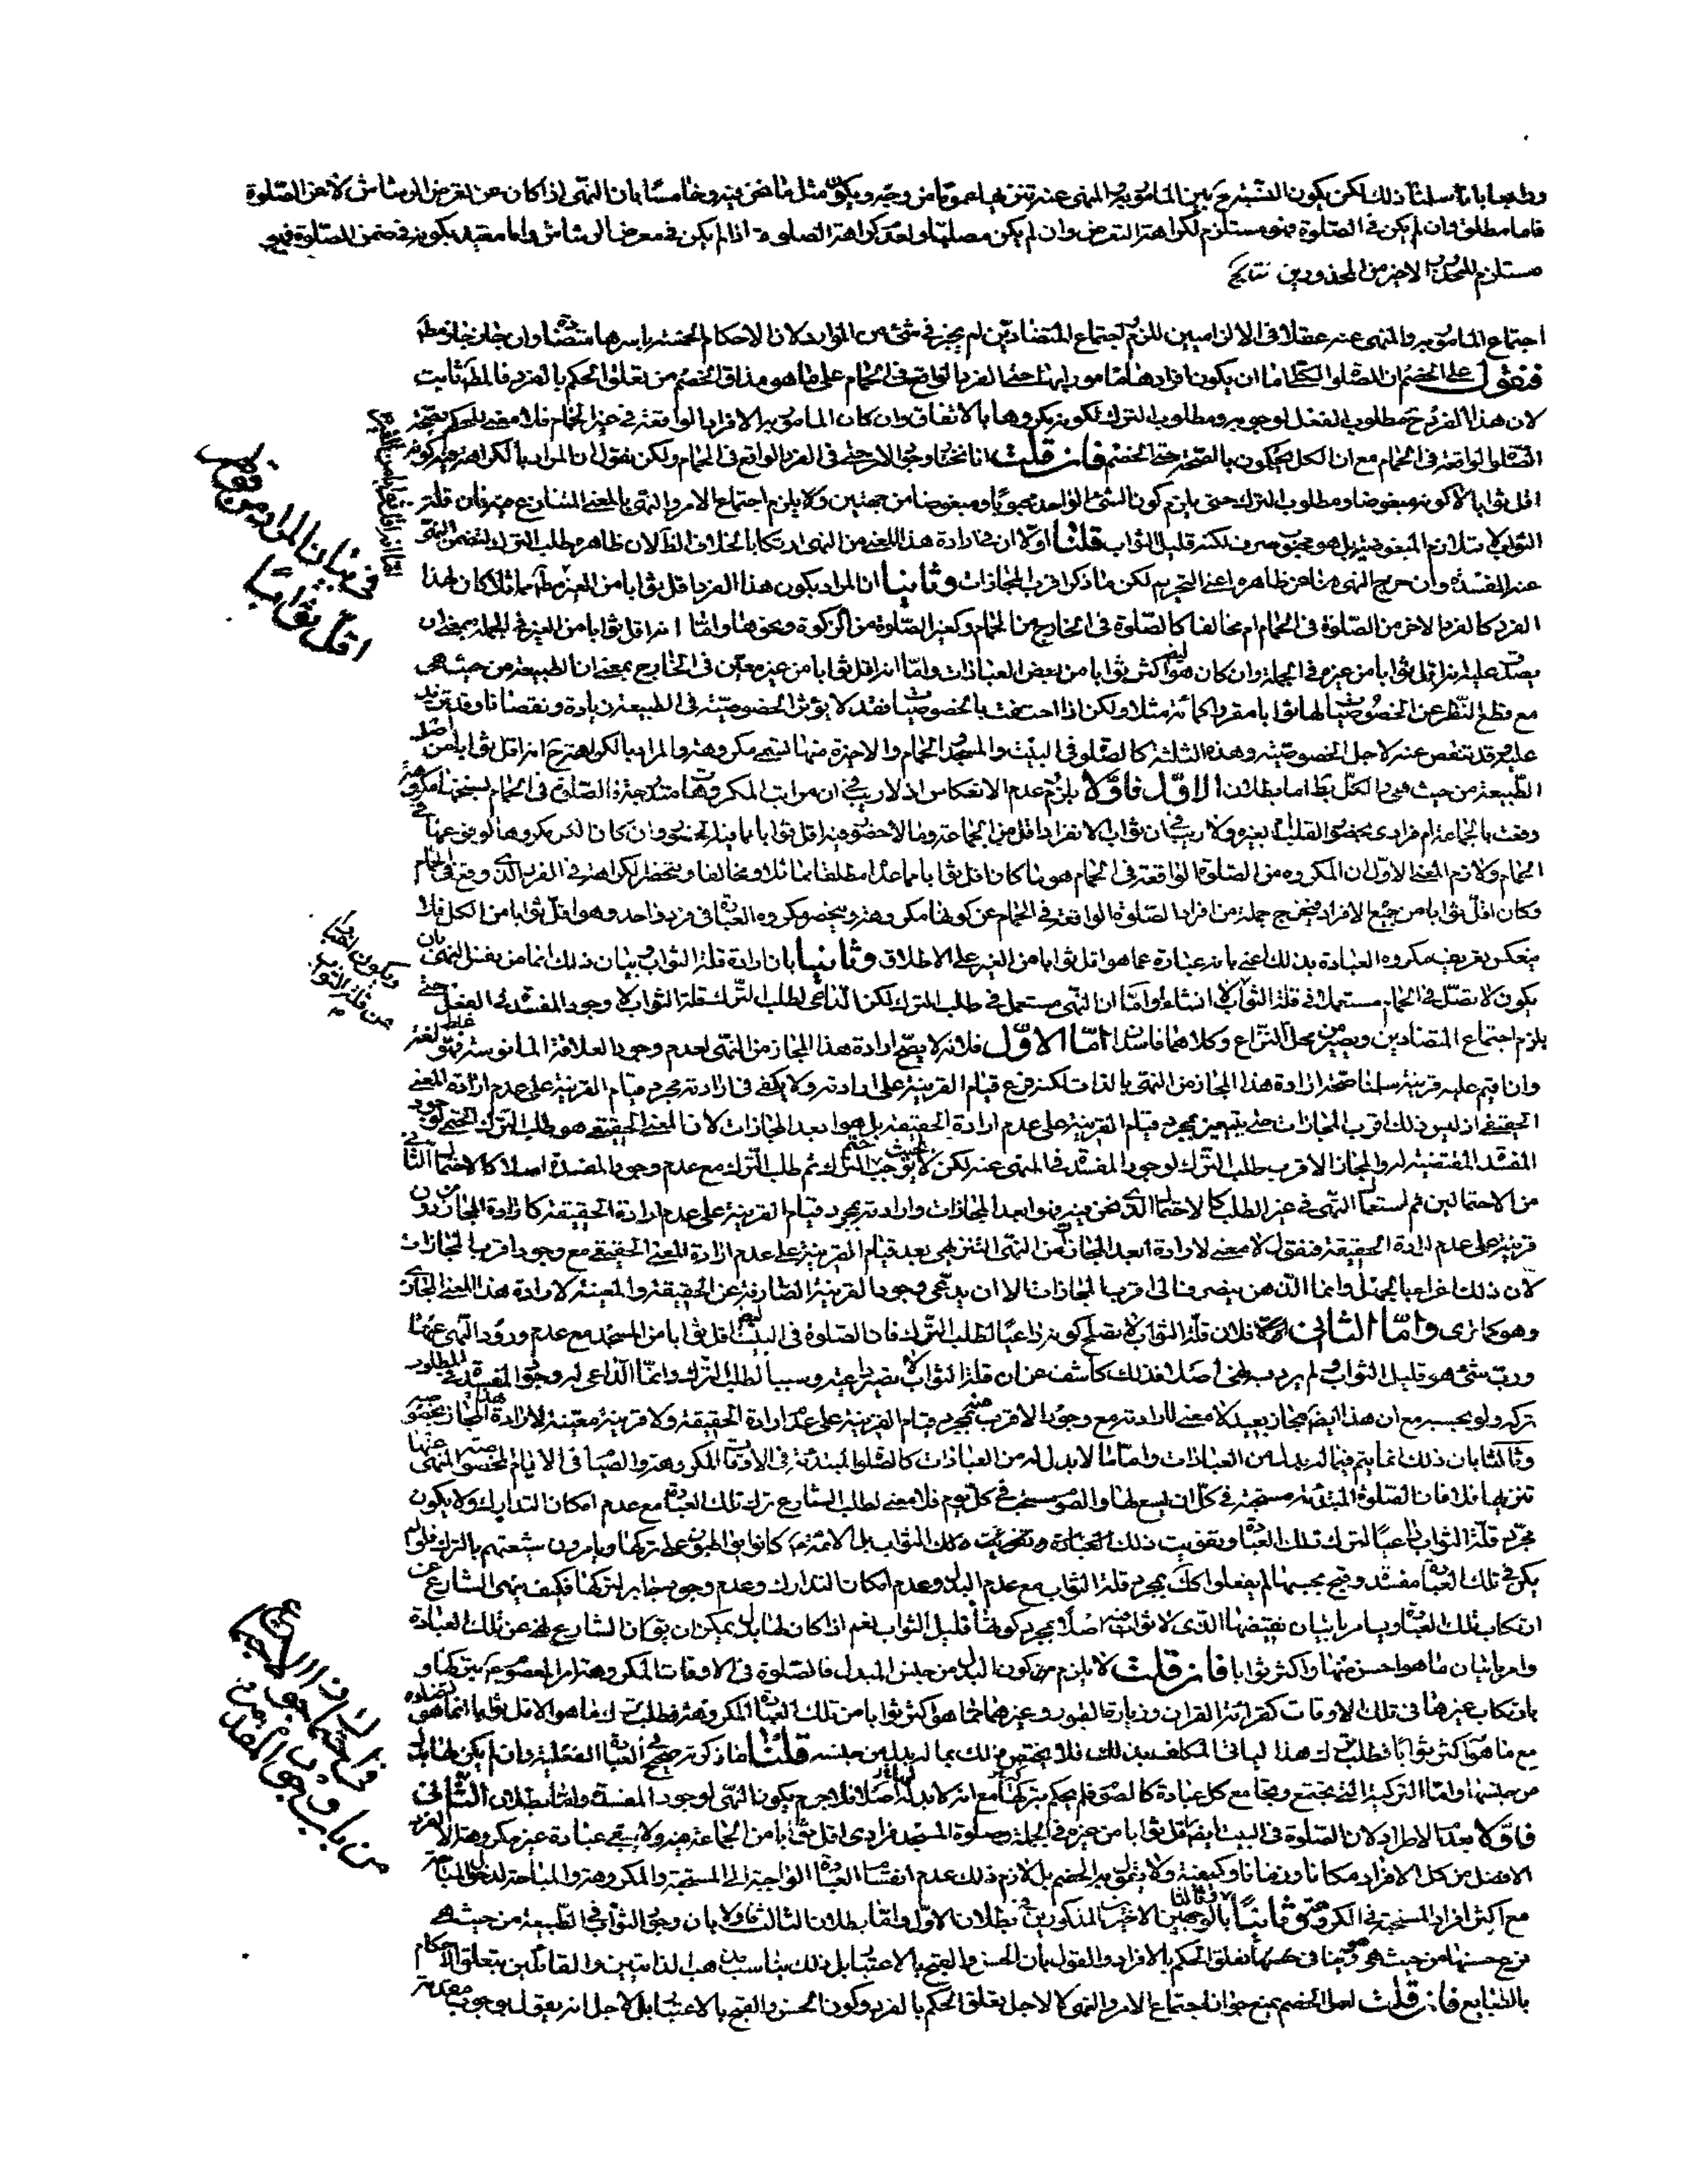 ورابعا باناسلمنا ذلك لكن يكون النسبة ح بين المامور به والمنهى عنه تنزيها عموما من وجه ويكون مثل ما نحن فيه وخامسا بان النهى اذا كان عن تعرض الرشاش لا عن الصلوة
فاما مطلق وان لم يكن فى الصلوة فهو مستلزم لكراهة التعرض وان لم يكن مصليا ولعدم كراهة الصلوة اذا لم يكن فى معرض الرشاش واما مقيد بكونه فى ضمن الصلوة فهو
مستلزم للمحذور الاخر من المحذورين نتايج
اجتماع المامور به والمنهى عنه عقلا فى الالزاميين للزوم اجتماع المتضادين لم يجز فى شئ من الموارد لان الاحكام الخمسة باسرها متضادة وان جاز جاز مطلقا
فنقول على الخصم ان الصلوة الكلى اما ان يكون افرادها مامورا بها حتى الفرد الواقع فى الحمام على ما هو مذاق الخصم من تعلق الحكم بالفرد فالمط ثابت
لان هذا الفرد ح مطلوب الفعل لوجوبه ومطلوب الترك لكونه مكروها بالاتفاق وان كان المامور به الافراد الواقعة فى غير الحمام فلا معنى للحكم بصحة
الصلوة الواقعة فى الحمام مع ان الكل يحكمون بالصحة حتى الخصم فان قلت انا نختار وجود الامر حتى فى الفرد الواقع فى الحمام ولكن نقول ان المراد بالكراهة فيه كونه
اقل ثوابا لا كونه مبغوضا ومطلوب الترك حتى يلزم كون الشئ الواحد محبوبا ومبغوضا من جهتين ولا يلزم اجتماع الامر والنهى بالمعنى المتنازع فيه فان قلة
الثواب لا يستلزم المبغوضية بل هو محبوب صرف لكنه قليل الثواب قلنا اولا ان فى ارادة هذا المعنى من النهى ارتكابا لخلاف الظ لان ظاهره طلب الترك لتضمن المنهى
عنه المفسدة وان خرج النهى هنا عن ظاهره اعنى التحريم لكن ما ذكر اقرب المجازات وثانيا ان المراد بكون هذا الفرد اقل ثوابا من الغير مط مماثلا كان لهذا
الفرد كالفرد الاخر من الصلوة فى الحمام ام مخالفا كالصلوة فى الخارج من الحمام وكغير الصلوة من الزكوة ونحوها واما انه اقل ثوابا من الغير فى الجملة بمعنى ان
يصدق عليه انه اقل ثوابا من غيره فى الجملة وان كان هو ايضا اكثر ثوابا من بعض العبادات واما انه اقل ثوابا من غير معين فى الخارج بمعنى ان الطبيعة من حيث هى
مع قطع النظر عن الخصوصيات لها ثواب مقرر كمائة مثلا ولكن اذا احتفت بالخصوصيات فقد لا يؤثر الخصوصية فى الطبيعة زيادة ونقصانا وقد يزيد
عليه وقد تنقص عنه لاجل الخصوصية وهذه الثلثة كالصلوة فى البيت والمسجد والحمام والاخيرة منها تسمى مكروهة والمراد بالكراهة ح انه اقل ثوابا من اصل
الطبيعة من حيث هى والكل بط اما بطلان الاول فاولا يلزم عدم الانعكاس اذ لا ريب فى ان مراتب المكروهات متدرجة والصلوة فى الحمام بنفسها مكروهة
وقعت بالجماعة ام فرادى بحضور القلب ام بغيره ولا ريب فى ان ثواب الانفراد اقل من الجماعة وما لا حضور فيه اقل ثوابا مما فيه الحضور وان كان الكل مكروها لوقوعها فى
الحمام ولازم المعنى الاول ان المكروه من الصلوة الواقعة فى الحمام هو ما كان اقل ثوابا مما عداه مطلقا مماثلا ومخالفا وينحصر الكراهة فى الفرد الذى وقع فى الحمام
وكان اقل ثوابا من جميع الافراد فيخرج جملة من افراد الصلوة الواقعة فى الحمام عن كونها مكروهة وينحصر مكروه العبادة فى فرد واحد وهو اقل ثوابا من الكل فلا
ينعكس تعريف مكروه العبادة بذلك اعنى بانه عبارة عما هو اقل ثوابا من الغير على الاطلاق وثانيا بان ارادة قلة الثواب بيان ذلك اما من نفس النهى بان
يكون لا تصل فى الحمام مستعملا فى قلة الثواب لا انشاء واما ان النهى مستعمل فى طلب الترك لكن الداعى لطلب الترك قلة الثواب لا وجود المفسدة فى الفعل حتى
يلزم اجتماع المتضادين ويصير من محل النزاع وكلاهما فاسد اما الاول فلانه لا يصح ارادة هذا المجاز من النهى لعدم وجود العلاقة المانوسة فهو غلط لغة
وان قيم عليه قرينة سلمنا صحة ارادة هذا المجاز من النهى بالذات لكنه فرع قيام القرينة على ارادته ولا يكفى فى ارادته مجرد قيام القرينة على عدم ارادة المعنى
الحقيقى اذ ليس ذلك اقرب المجازات حتى يتعين بمجرد قيام القرينة على عدم ارادة الحقيقة بل هو ابعد المجازات لان المعنى الحقيقى هو طلب الترك الحتمى لوجود
المفسدة المقتضية له والمجاز الاقرب طلب الترك لوجود المفسدة فى المنهى عنه لكن لا بحيث يوجب حتم الترك ثم طلب الترك مع عدم وجود المفسدة اصلا كالاحتمال الثانى
من الاحتمالين ثم استعمال النهى فى غير الطلب كالاحتمال الذى نحن فيه فهو ابعد المجازات وارادته بمجرد قيام القرينة على عدم ارادة الحقيقة كارادة المجاز من دون
قرينة على عدم ارادة الحقيقة فنقول لا معنى لارادة ابعد المجازات من النهى التنزيهى بعد قيام القرينة على عدم ارادة المعنى الحقيقى مع وجود اقرب المجازات
لان ذلك اغراء بالجهل وانما الذهن ينصرف الى اقرب المجازات الا ان يدعى وجود القرينة الصارفة عن الحقيقة والمعينة لارادة هذا المعنى المجازى
وهو كما ترى واما الثانى اولا فلان قلة الثواب لا تصلح كونه داعيا لطلب الترك فان الصلوة فى البيت ايضا اقل ثوابا من المسجد مع عدم ورود النهى عنها
ورب شئ هو قليل الثواب لم يرد به نهى اصلا فذلك كاشف عن ان قلة الثواب لا تصير داعية وسببا لطلب الترك وانما الداعى له وجود المفسدة فى المطلوب
تركه ولو بحسبه مع ان هذا ايضا مجاز بعيد لا معنى لارادته مع وجود الاقرب منه بمجرد قيام القرينة على عدم ارادة الحقيقة ولا قرينة معينة لارادة هذا المجاز بخصوصه
وثالثا بان ذلك انما يتم فيما له بدل من العبادات واما ما لا بدل له من العبادات كالصلوة المبتدئة فى الاوقات المكروهة والصيام فى الايام المخصوصة المنهى عنها
تنزيها فلا فان الصلوة المبتدئة مستحبة فى كل ان يسع لها والصوم مستحب فى كل يوم فلا معنى لطلب الشارع ترك تلك العبادة مع عدم امكان التدارك ولا يكون
مجرد قلة الثواب داعيا لترك تلك العبادة وتفويت ذلك العبادة وتفويت ذلك الثواب بل الائمة كانوا يواظبون على تركها ويامرون شيعتهم بالترك فلو لم
يكن فى تلك العبادة مفسدة وقبح بحسبها لم يفعلوا كك بمجرد قلة الثواب مع عدم البدل وعدم امكان التدارك وعدم وجود جابر لتركها فكيف ينهى الشارع عن
ارتكاب تلك العبادة ويامر باتيان نقيضها الذى لا ثواب فيه اصلا بمجرد كونها قليل الثواب نعم اذا كان لها بدل يمكن ان يق ان الشارع نهى عن تلك العبادة
وامر باتيان ما هو احسن منها واكثر ثوابا فان قلت لا يلزم من كون البدل من جنس المبدل فالصلوة فى الاوقات المكروهة امر المعصوم بتركها و
بارتكاب غيرها فى تلك الاوقات كقرائة القران وزيارة القبور وغيرهما مما هو اكثر ثوابا من تلك العبادة المكروهة فطلب ترك ما هو الاقل ثوابا انما هو لتضاده
مع ما هو اكثر ثوابا فطلب ترك هذا لياتى المكلف بذلك فلا يختص ذلك بما له بدل من جنسه قلنا ما ذكرته صحيح فى العبادات الفعلية وان لم يكن لها بدل
من جنسها واما التركية التى تجتمع وتجامع كل عبادة كالصوم فلم يحكم بتركها مع انه لا بدل له اصلا فلا جرم يكون النهى لوجود المفسدة واما بطلان الثانى
فاولا بعدم الاطراد لان الصلوة فى البيت ايضا اقل ثوابا من غيره فى الجملة وصلوة المسجد فرادى اقل ثوابا من الجماعة فيه ولا يبقى عبادة غير مكروهة الا الفرد
الافضل من كل الافراد مكانا وزمانا وكيفية ولا يقول به الخصم بل لازم ذلك عدم انقسام العبادة الواجبة الى المستحبة والمكروهة والمباحة لدخول المباحة
مع اكثر افراد المستحبة فى المكروهة وثانيا وثالثا بالوجهين الاخيرين المذكورين فى بطلان الاول واما بطلان الثالث فاولا بان وجود الثواب فى الطبيعة من حيث هى
فرع حسنها من حيث هى هو وبنينا فى حسنها بتعلق الحكم بالافراد والقول بان الحسن والقبح بالاعتبار بل ذلك يناسب مذهب الذاتيين والقائلين بتعلق الاحكام
بالطبايع فان قلت لعل الخصم يمنع جواز اجتماع الامر والنهى لا لاجل تعلق الحكم بالفرد وكون الحسن والقبح بالاعتبار بل لاجل انه يقول بوجوب مقدمة
فى بيان المراد من قولهم
اقل ثوابا
ويكون المراد النهى
من قلة الثواب